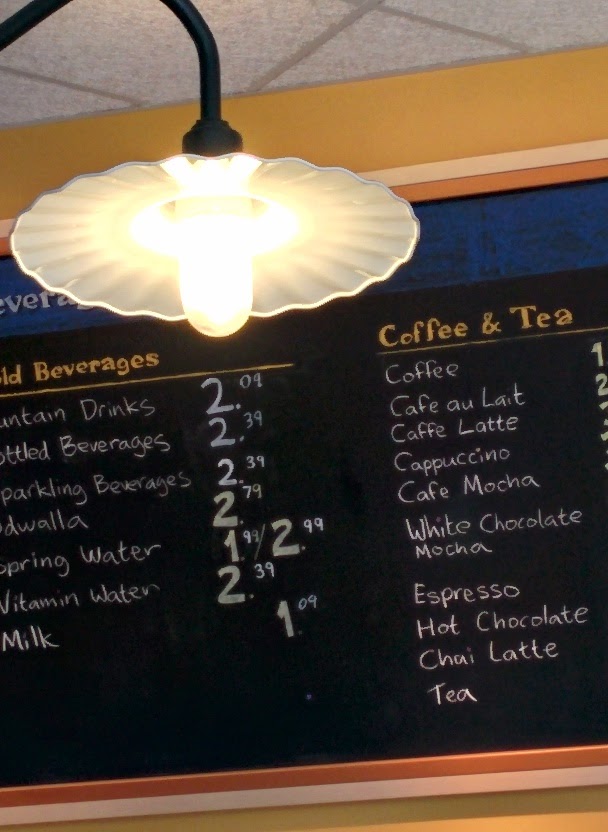 old Beverages
untain Drinks 2.09
ottled Beverages 2.39
parkling Beverages 2.39
dwalla 2.79
Spring Water 1.99/2.99
Vitamin Water 2.39
Milk 1.09
Coffee & Tea
Coffee
Cafe au Lait
Caffe Latte
Cappuccino
Cafe Mocha
White Chocolate
Mocha
Espresso
Hot Chocolate
Chai Latte
Tea